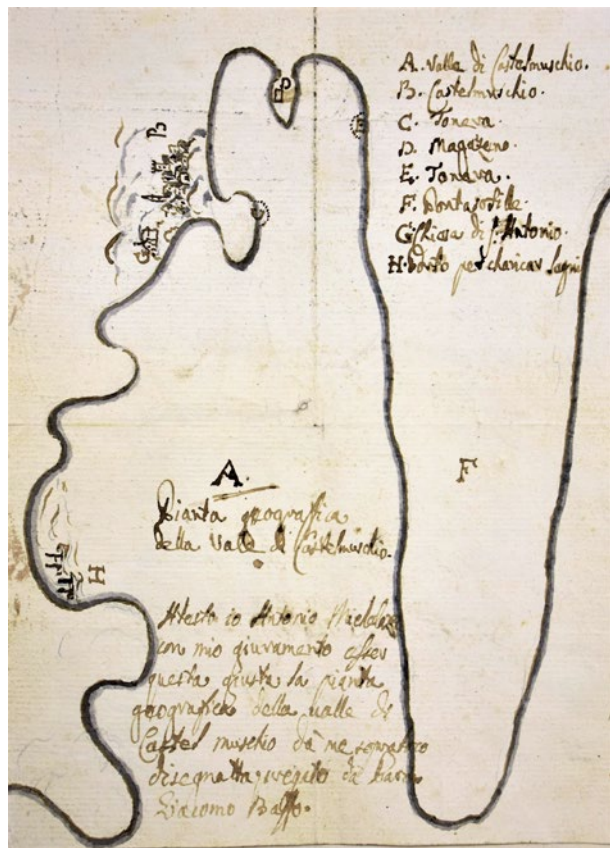 A. Valle di Castelmuschio.
B. Castelmuschio.
C. Tonera.
D. Magazeno.
E. Tonera.
F.
G. Chiesa di S. Antonio.
H. Porto per charicar legni
B
D
E
C
G
A.
F
H
Pianta geografica
della Valle di Castelmuschio.
Atesto io Antonio
con mio giuramento esser
questa giusta la pianta
geografica della valle di
Castel muschio da me
disegnatta pregato da
Giacomo Baffo.